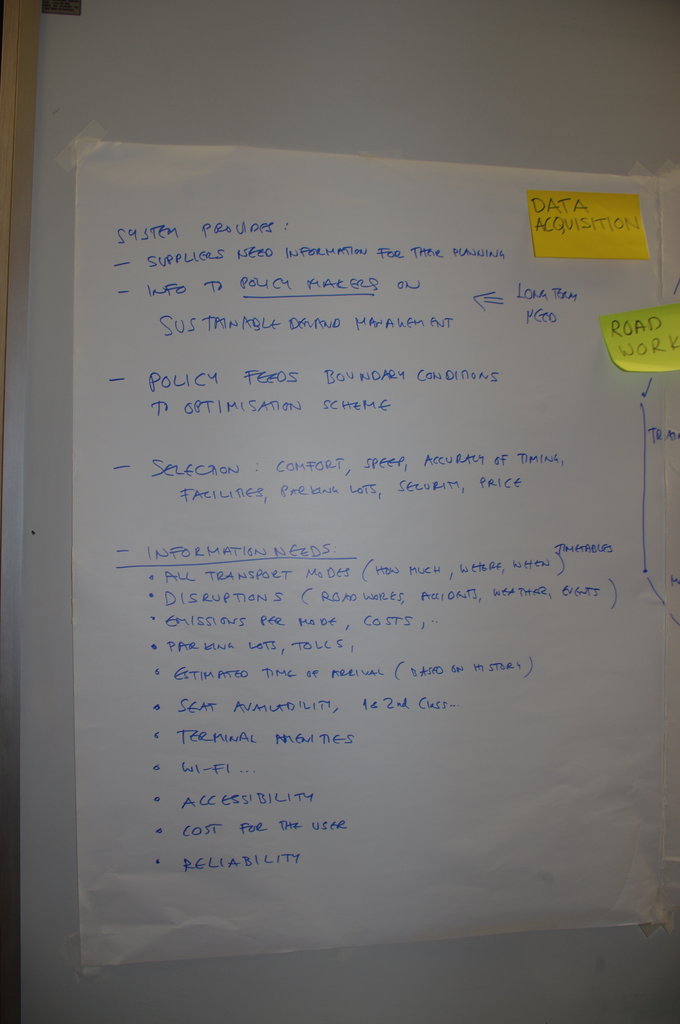 DATA
ACQUISITION
SYSTEM PROVIDES:
- SUPPLIERS NEED INFORMATION FOR THEIR PLANNING
- INFO TO POLICY MAKERS ON
SUSTAINABLE DEMAND MANAGEMENT
<= LONG TERM
NEED
ROAD
WORK
- POLICY FEEDS BOUNDARY CONDITIONS
TO OPTIMISATION SCHEME
- SELECTION: COMFORT, SPEED, ACCURACY OF TIMING,
FACILITIES, PARKING LOTS, SECURITY, PRICE
- INFORMATION NEEDS:
• ALL TRANSPORT MODES (HOW MUCH, WHERE, WHEN) TIMETABLES
• DISRUPTIONS (ROAD WORKS, ACCIDENTS, WEATHER, EVENTS)
• EMISSIONS PER MODE, COSTS, ..
• PARKING LOTS, TOLLS,
• ESTIMATED TIME OF ARRIVAL (BASED ON HISTORY)
• SEAT AVAILABILITY, 1 & 2nd Class...
• TERMINAL AMENITIES
• WI-FI ...
• ACCESSIBILITY
• COST FOR THE USER
• RELIABILITY